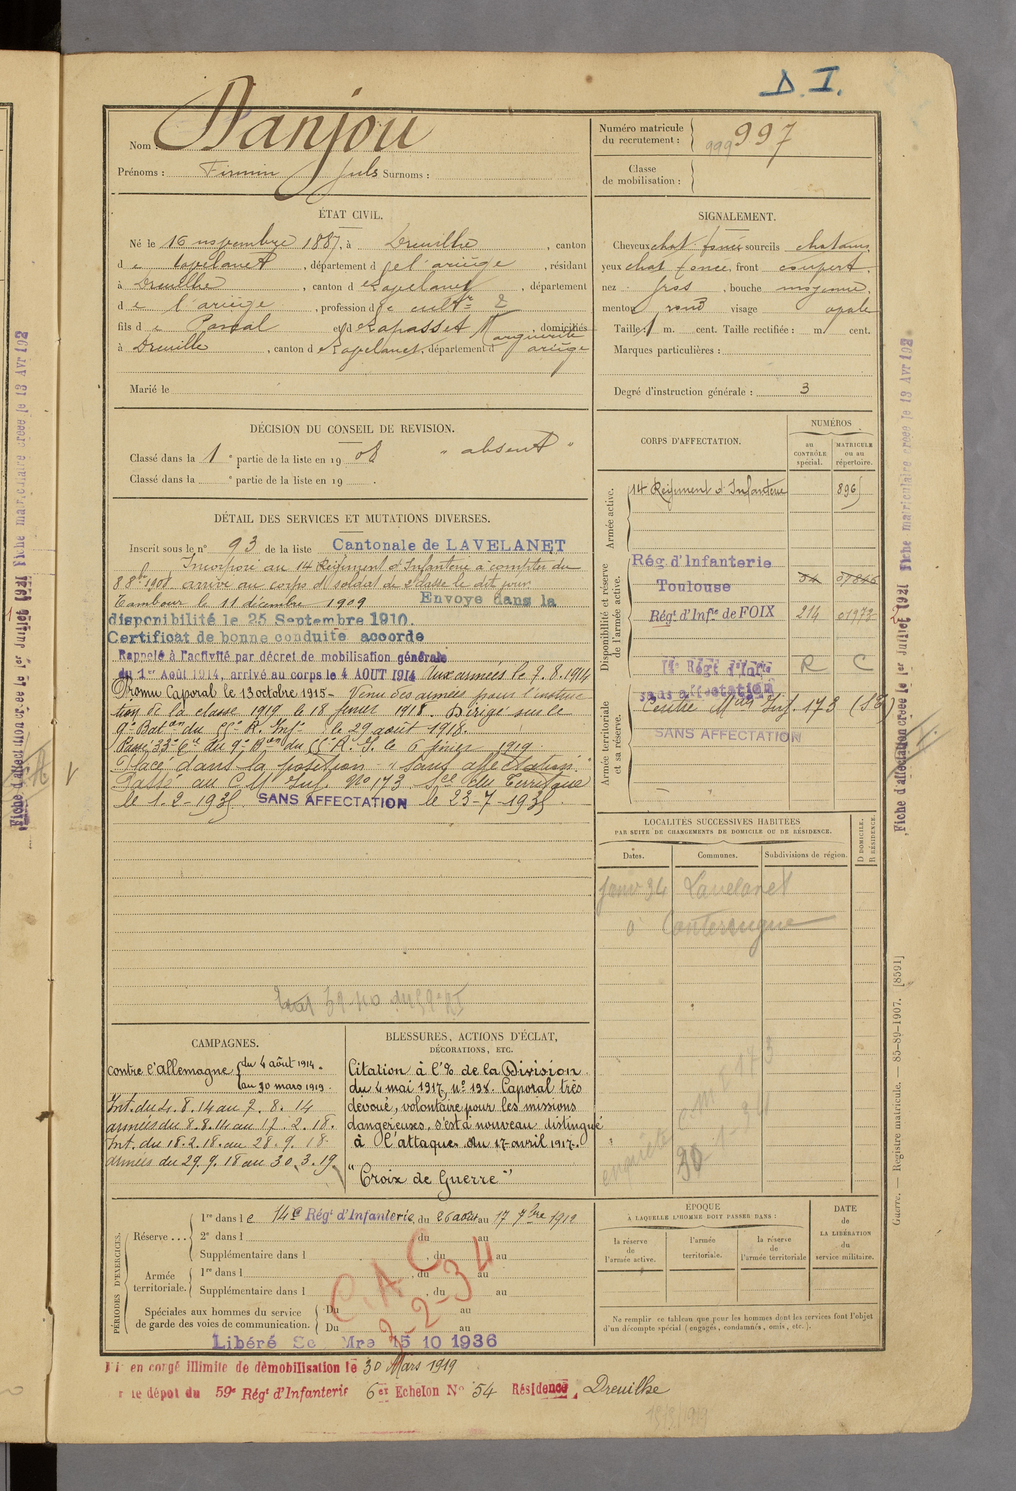 D. I.
Nom : Danjou
Prénoms : Firmin Juls Surnoms :
Numéro matricule du recrutement : 999 997
Classe de mobilisation :
ÉTAT CIVIL.
Né le 16 novembre 1887, à Dreuilhe, canton
de Lavelanet, département de l'ariège, résidant
à Dreuilhe, canton de Lavelanet, département
de l'ariège, profession de cultr
fils de Pascal et de Lapasset Marguerite, domiciliés
à Dreuille, canton de Lavelanet, département d ariège
Marié le
SIGNALEMENT.
Cheveux chat. foncé sourcils chatains
yeux chat fonce, front couvert,
nez gros, bouche moyenne,
menton rond visage ovale
Taille : 1 m. cent. Taille rectifiée : m. cent.
Marques particulières :
Degré d'instruction générale : 3
DÉCISION DU CONSEIL DE REVISION.
Classé dans la 1e partie de la liste en 1908 " absent "
Classé dans la e partie de la liste en 19 .
DÉTAIL DES SERVICES ET MUTATIONS DIVERSES.
Inscrit sous le n° 93 de la liste Cantonale de LAVELANET
Incorporé au 14 Régiment d'Infanterie à compter du
8 8bre 1908 arrivé au corps et soldat de 2e classe le dit jour
Tambour le 11 décembre 1909 Envoyé dans la
disponibilité le 25 Septembre 1910.
Certificat de bonne conduite accordé
Rappelé à l'activité par décret de mobilisation générale
du 1er Août 1914, arrivé au corps le 4 AOUT 1914 Aux armées le 7.8.1914
Promu Caporal le 13 octobre 1915 - Venu des armées pour l'instruc-
tion de la classe 1919 le 18 févr 1918. Dirigé sur le
9e Baton du R. Inf. le 29 août 1918.
Passé 33e Cie du 9e Bon du R. I. le 6 février 1919.
Placé dans la position "sans affectation".
Passé au C M Inf. No 173
le 1-2-1935 SANS AFFECTATION le 23-7-1935
CORPS D'AFFECTATION.
NUMÉROS
au CONTRÔLE spécial.
MATRICULE ou au répertoire.
Armée active.
14 Régiment d'Infanterie 896
Disponibilité et réserve de l'armée active.
Rég. d'Infanterie
Toulouse
Régt d'Infie de FOIX 214 01973
Armée territoriale et sa réserve.
R C
sans affectation
Centre Mon Inf. 173
SANS AFFECTATION
LOCALITÉS SUCCESSIVES HABITÉES
PAR SUITE DE CHANGEMENTS DE DOMICILE OU DE RÉSIDENCE.
Dates. Communes. Subdivisions de région. D DOMICILE. R RÉSIDENCE.
Janv 34 Lavelanet
enquête CM 173
30-1-34
CAMPAGNES.
contre l'Allemagne du 4 août 1914.
au 30 mars 1919.
Int. du 4.8.14 au 7.8.14
armées du 8.8.14 au 17.2.18.
Int. du 18.2.18 au 28.9.18
armées du 29.9.18 au 30.3.19
BLESSURES, ACTIONS D'ÉCLAT,
DÉCORATIONS, ETC.
Citation à l'% de la Division
du 4 mai 1917, n° 198. Caporal très
dévoué, volontaire pour les missions
dangereuses, s'est à nouveau distingué
à l'attaque du 17 avril 1917.
"Croix de Guerre"
PÉRIODES D'EXERCICES.
Réserve ... 1re dans le 14e Régt d'Infanterie, du 26 août au 17 7bre 1912
2e dans l , du au
Supplémentaire dans l , du au
Armée territoriale. 1re dans l , du au
Supplémentaire dans l , du au
Spéciales aux hommes du service de garde des voies de communication. Du au
Du au
C.A.C
2-2-34
Libéré Sce Mre 15 10 1936
ÉPOQUE
À LAQUELLE L'HOMME DOIT PASSER DANS :
la réserve de l'armée active.
l'armée territoriale.
la réserve de l'armée territoriale
DATE de LA LIBÉRATION du service militaire.
Ne remplir ce tableau que pour les hommes dont les services font l'objet
d'un décompte spécial (engagés, condamnés, omis, etc.).
en congé illimité de démobilisation le 30 Mars 1919
le dépôt du 59e Régt d'Infanterie 6e Echelon N° 54 Résidence, Dreuilhe
Guerre. — Registre matricule. — 85-89-1907. [8591]
Fiche d'affectation créée le 1er Juillet 1921
Fiche matriculaire créée le 13 Avr 192